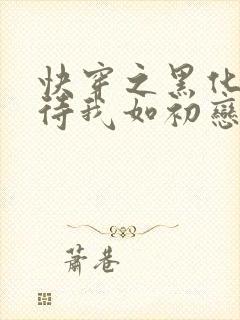 快穿之黑化
待我如初戀
蕭巷